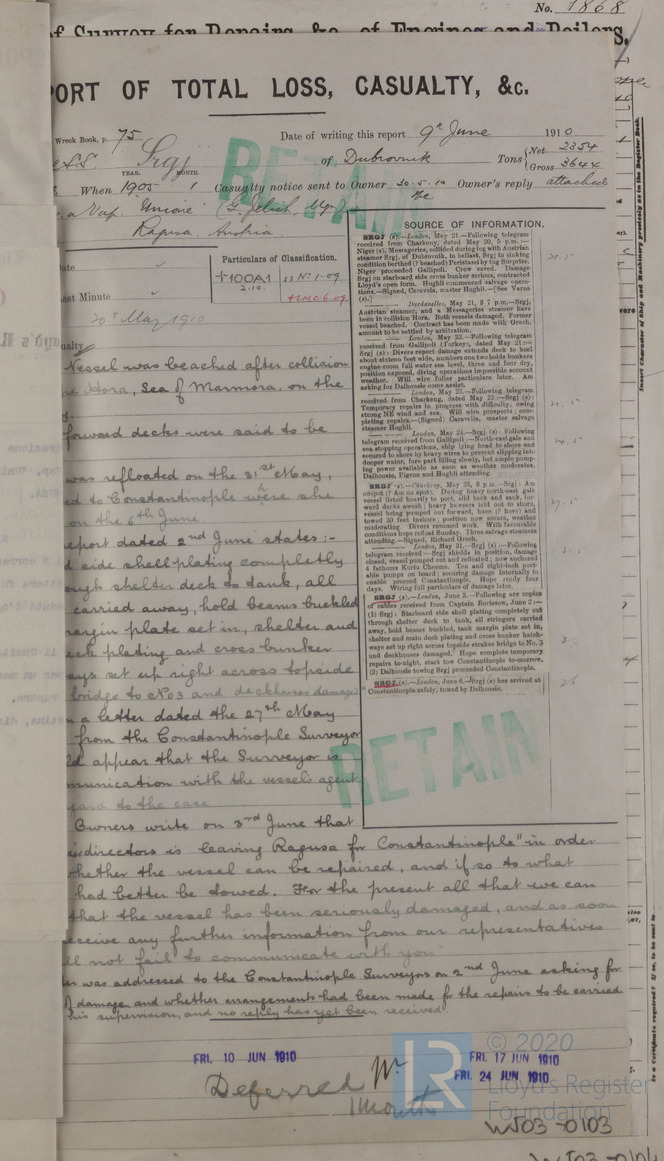 No. 1868
of Survey for Repairs, &c., of Engines and Boilers.
PORT OF TOTAL LOSS, CASUALTY, &c.
Wreck Book, p. 75
Date of writing this report 9th June 1910.
S.S. Srgj of Dubrovnik Tons Net 2354
Gross 3644
YEAR. MONTH.
When 1905 1 Casualty notice sent to Owner 30.5.10 Owner's reply attached
a Nav. "Unione" (G. Jelich, Mgr.)
Ragusa, Austria.
RETAIN
Particulars of Classification.
+100A1
2.10.
SS No 1-09
+LMC 6.09
Last Minute
20th May 1910
Casualty
Vessel was beached after collision
Hora, Sea of Marmora, on the
forward decks were said to be
was refloated on the 31st May,
ed to Constantinople where she
on the 6th June.
eport dated 2nd June states:-
d side shell plating completly
ough shelter deck to tank, all
carried away, hold beams buckled
margin plate set in, shelter and
eck plating and cross bunker
ays set up right across topside
bridge to No 3 and deckhouses damaged
n a letter dated the 27th May
from the Constantinople Surveyor
ld appear that the Surveyor is
munication with the vessel's agent
gard to the case
Owners write on 3rd June that
directors is leaving Ragusa for Constantinople" in order
whether the vessel can be repaired, and if so to what
had better be towed. For the present all that we can
that the vessel has been seriously damaged, and as soon
eceive any further information from our representatives
ll not fail to communicate with you"
er was addressed to the Constantinople Surveyors on 2nd June asking for
damage and whether arrangements had been made for the repairs to be carried
his supervision, and no reply has yet been received
SOURCE OF INFORMATION.
SRGJ (s).—London, May 21.—Following telegram
received from Charkeuy, dated May 20, 5 p.m.:—
Niger (s), Messageries, collided during fog with Austrian
steamer Srgj, of Dubrovnik, in ballast, Srgj in sinking
condition berthed (? beached) Peristasd by tug Surprise.
Niger proceeded Gallipoli. Crew saved. Damage
Srgj on starboard side cross bunker serious, contracted
Lloyd's open form. Hughli commenced salvage opera-
tions.—Signed, Caravela, master Hughli.—[See Varna
(s).]
— Dardanelles, May 21, 9 7 p.m.—Srgj,
Austrian steamer, and a Messageries steamer have
been in collision Hora. Both vessels damaged. Former
vessel beached. Contract has been made with Grech,
amount to be settled by arbitration.
— London, May 23.—Following telegram
received from Gallipoli (Turkey), dated May 21:—
Srgj (s): Divers report damage extends deck to keel
about sixteen feet wide, numbers one two holds bunkers
engine-room full water sea level, three and four dry,
position exposed, diving operations impossible account
weather. Will wire fuller particulars later. Am
asking for Dalhousie come assist.
— London, May 23.—Following telegram
received from Charkeuy, dated May 22:—Srgj (s):
Temporary repairs in progress with difficulty, owing
strong NE wind and sea. Will wire prospects; com-
pleting repairs.—(Signed) Caravela, master salvage
steamer Hughli.
— London, May 24.—Srgj (s): Following
telegram received from Gallipoli:—North-east gale and
sea stopping operations, ship lying head to shore and
secured to shore by heavy wires to prevent slipping into
deeper water, fore part filling slowly, but ample pump-
ing power available as soon as weather moderates.
Dalhousie, Pigeon and Hughli attending.
SRGJ (s).—Charkeuy, May 26, 8 p.m.—Srgj: Am
outpot (? Am on spot). During heavy north-east gale
vessel listed heavily to port, slid back and sank, for-
ward decks awash; heavy hawsers laid out to shore,
vessel being pumped out forward, have (? hove) and
towed 30 feet inshore; position now secure, weather
moderating. Divers resumed work. With favourable
conditions hope refloat Sunday. Three salvage steamers
attending.—Signed, Richard Grech.
— London, May 31.—Srgj (s): Following
telegram received:—Srgj shields in position, damage
closed, vessel pumped out and refloated; now anchored
4 fathoms Kutru Chesme. Ten and eight-inch port-
able pumps on board; securing damage internally to
enable proceed Constantinople. Hope ready four
days. Wiring full particulars of damage later.
SRGJ (s).—London, June 3.—Following are copies
of cables received from Captain Burissow, June 2:—
(1) Srgj: Starboard side shell plating completely out
through shelter deck to tank, all stringers carried
away, hold beams buckled, tank margin plate set in,
shelter and main deck plating and cross bunker hatch-
ways set up right across topside strakes bridge to No. 3
and deckhouses damaged. Hope complete temporary
repairs to-night, start tow Constantinople to-morrow.
(2) Dalhousie towing Srgj proceeded Constantinople.
SRGJ (s).—London, June 6.—Srgj (s) has arrived at
Constantinople safely, towed by Dalhousie.
RETAIN
FRI. 10 JUN 1910
FRI. 17 JUN 1910
FRI. 24 JUN 1910
Deferred
1 month
© 2020
LR
Lloyd's Register
Foundation
W503-0103